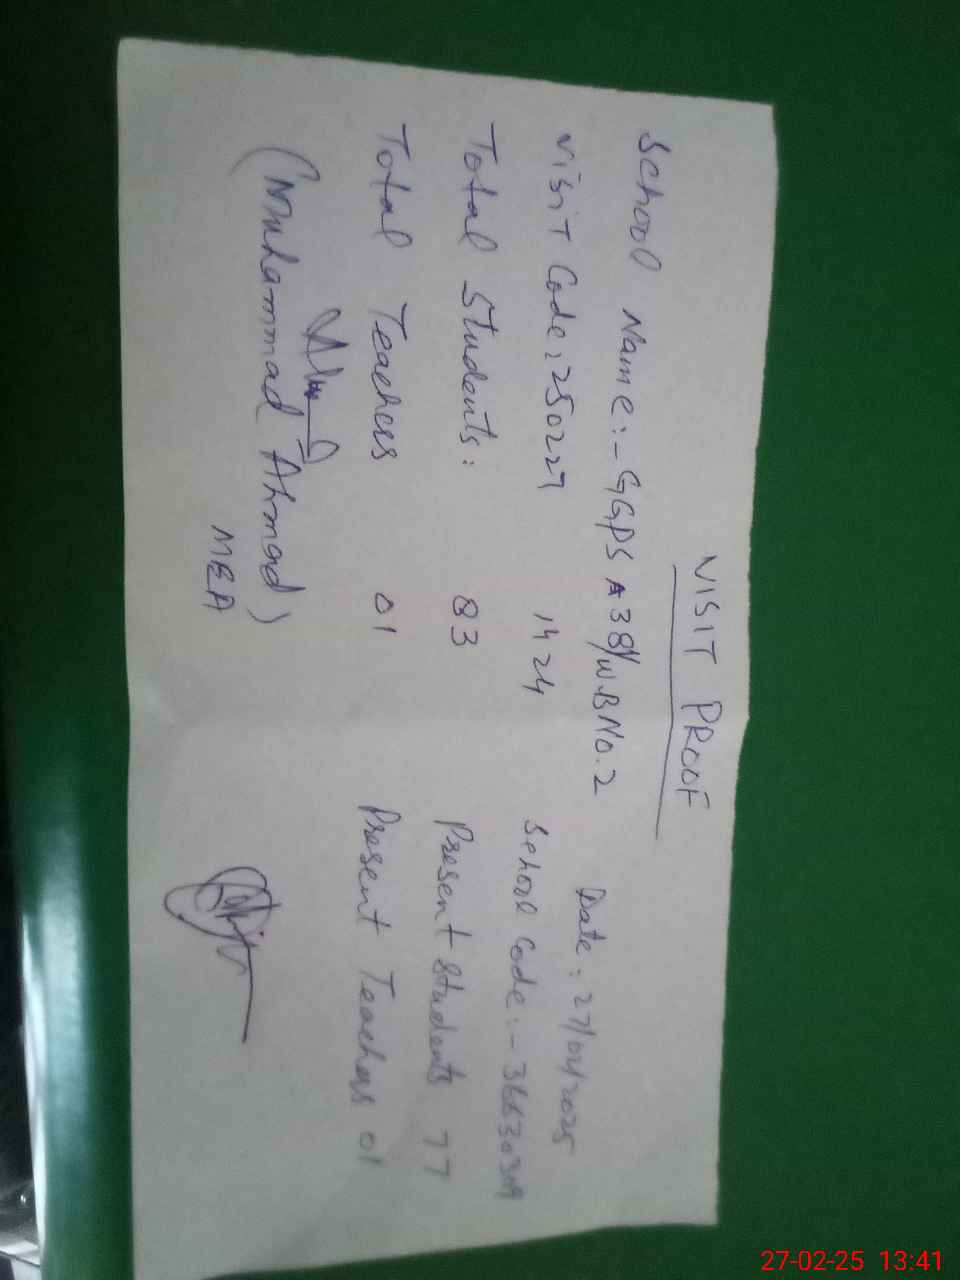 VISIT PROOF
School Name:- GGPS A 38/W.B No. 2 Date: 27/02/2025
Visit Code: 250227 1424 School Code:- 36630309
Total Students: 83 Present Students 77
Total Teachers 01 Present Teachers 01
(Muhammad Ahmad)
MEA
27-02-25 13:41